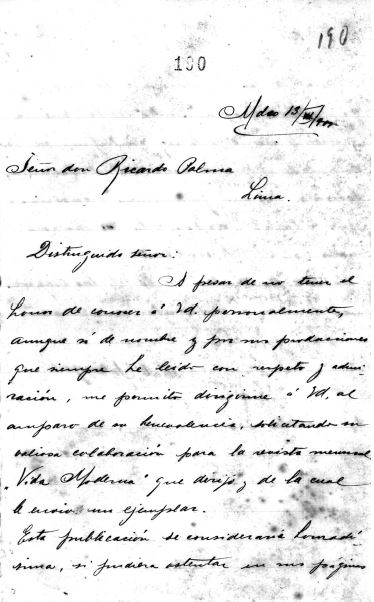 190
190
Mdeo 13/III/900
Señor don Ricardo Palma
Lima.
Distinguido señor:
A pesar de no tener el
honor de conocer á Vd. personalmente,
aunque sí de nombre y por sus producciones
que siempre he leido con respeto y admi-
ración, me permito dirigirme á Vd. al
amparo de su benevolencia, solicitando su
valiosa colaboración para la revista mensual
"Vida Moderna" que dirijo, y de la cual
le envio un ejemplar.
Esta publicación se consideraria honradí-
sima, si pudiera ostentar en sus páginas